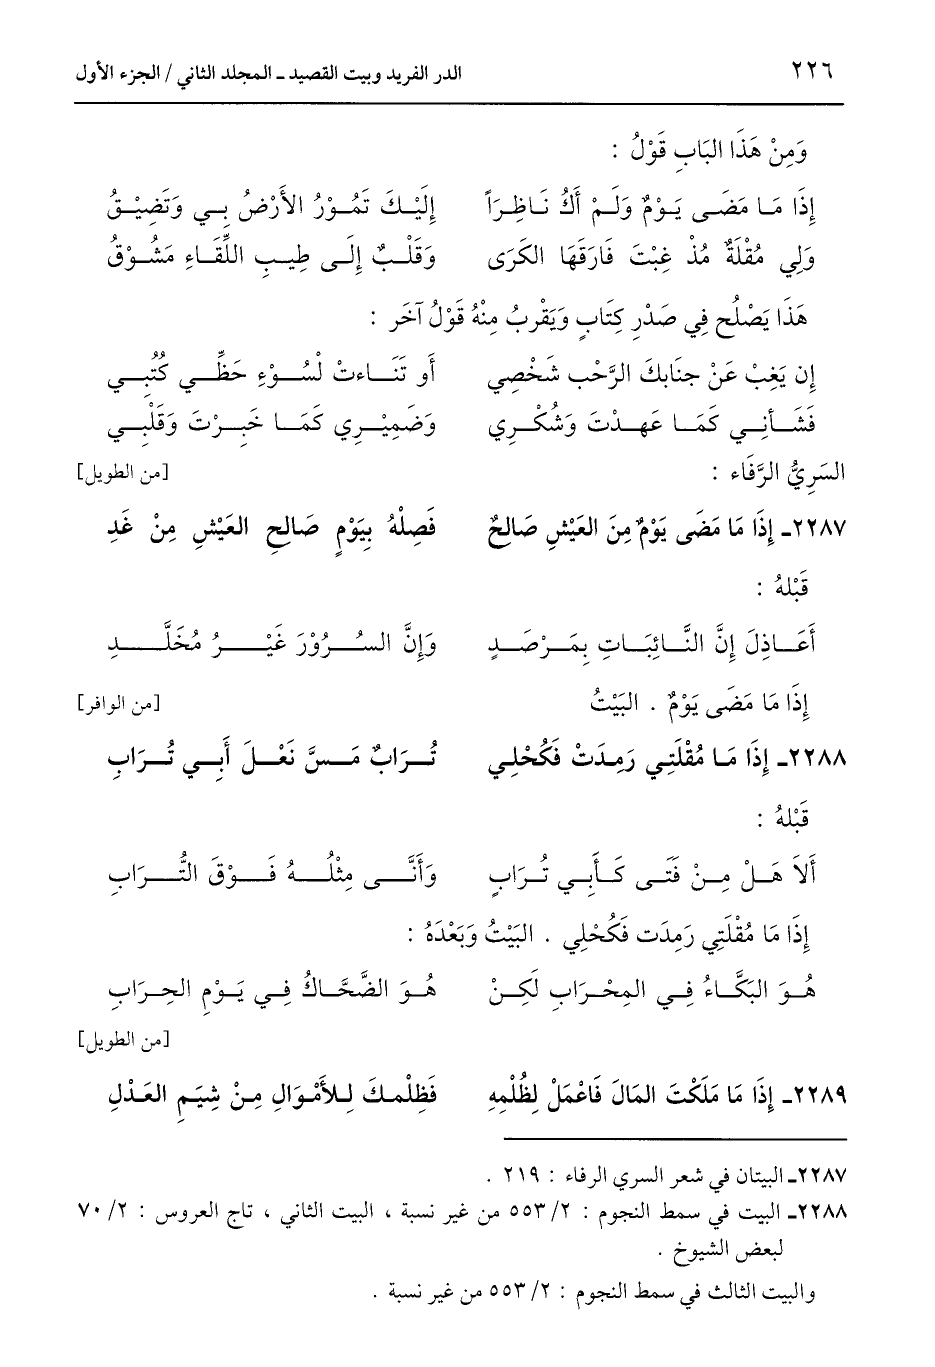 ٢٢٦ الدر الفريد وبيت القصيد ـ المجلد الثاني / الجزء الأول
وَمِنْ هَذَا البَابِ قَوْلُ :
إِذَا مَا مَضَى يَوْمٌ وَلَمْ أَكُ نَاظِرَاً إِلَيْكَ تَمُوْرُ الأَرْضُ بِي وَتَضِيْقُ
وَلِي مُقْلَةٌ مُذْ غِبْتَ فَارَقَهَا الكَرَى وَقَلْبٌ إِلَى طِيبِ اللِّقَاءِ مَشُوْقُ
هَذَا يَصْلُح فِي صَدْرِ كِتَابٍ وَيَقْرِبُ مِنْهُ قَوْلُ آخَر :
إِن يَغِبْ عَنْ جنَابكَ الرَّحْب شَخْصِي أَو تَنَاءتْ لسُوْءِ حَظِّي كُتُبِي
فَشَأنِي كَمَا عَهِدْتَ وَشُكْرِي وَضَمِيْرِي كَمَا خَبِرْتَ وَقَلْبِي
السَرِيُّ الرَّفَاء : [من الطويل]
٢٢٨٧ـ إِذَا مَا مَضَى يَوْمٌ مِنَ العَيْشِ صَالِحٌ فَصِلْهُ بِيَوْمٍ صَالحِ العَيْشِ مِنْ غَدِ
قَبْلهُ :
أَعَاذِلَ إِنَّ النَّائِبَاتِ بِمَرْصَدٍ وَإِنَّ السُرُوْرَ غَيْرُ مُخَلَّدِ
إِذَا مَا مَضَى يَوْمٌ . البَيْتُ [من الوافر]
٢٢٨٨ـ إِذَا مَا مُقْلَتِي رَمِدَتْ فَكُحْلِي تُرَابٌ مَسَّ نَعْلَ أَبِي تُرَابِ
قَبْلهُ :
أَلاَ هَلْ مِنْ فَتَى كَأَبِي تُرَابٍ وَأَنَّى مِثْلُهُ فَوْقَ التُّرَابِ
إِذَا مَا مُقْلَتِي رَمِدَت فَكُحْلِي . البَيْتُ وَبَعْدَهُ :
هُوَ البَكَّاءُ فِي المِحْرَابِ لَكِنْ هُوَ الضَّحَّاكُ فِي يَوْمِ الحِرَابِ
[من الطويل]
٢٢٨٩ـ إِذَا مَا مَلَكْتَ المَالَ فَاعْمَلْ لِظُلْمِهِ فَظِلْمكَ لِلأَمْوَالِ مِنْ شِيَمِ العَدْلِ
٢٢٨٧ـ البيتان في شعر السري الرفاء : ٢١٩ .
٢٢٨٨ـ البيت في سمط النجوم : ٢/ ٥٥٣ من غير نسبة ، البيت الثاني ، تاج العروس : ٢/ ٧٠
لبعض الشيوخ .
والبيت الثالث في سمط النجوم : ٢/ ٥٥٣ من غير نسبة .